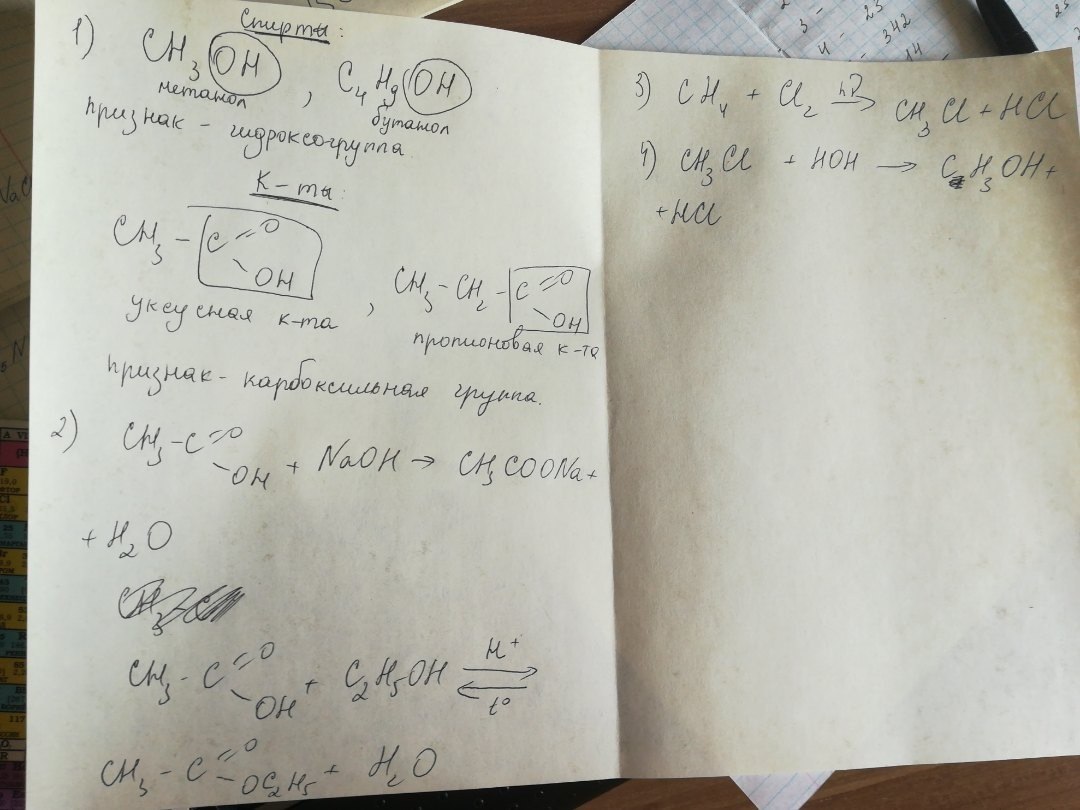 1) Спирты:
CH₃OH , C₄H₉OH
метанол бутанол
признак - гидроксогруппа
К-ты:
CH₃ - C =O
OH
, CH₃ - CH₂ - C =O
OH
уксусная к-та
пропионовая к-та
признак - карбоксильная группа.
2) CH₃ - C =O
OH + NaOH → CH₃COONa +
+ H₂O
CH₃ - C =O
OH + C₂H₅OH ⇄ H⁺ t°
CH₃ - C =O
OC₂H₅ + H₂O
3) CH₄ + Cl₂ hν→ CH₃Cl + HCl
4) CH₃Cl + HOH → CH₃OH +
+ HCl